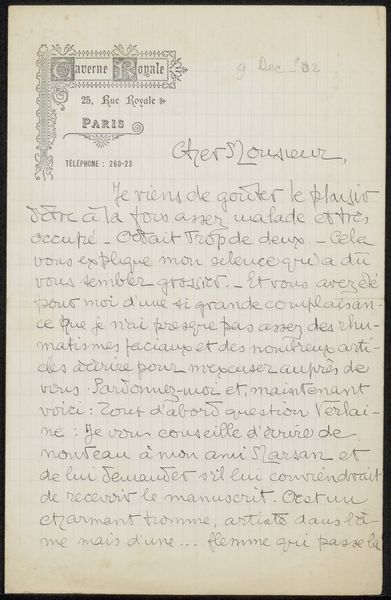 Taverne Royale
25, Rue Royale
PARIS
TÉLÉPHONE : 260-23
9 Dec '02
Cher Monsieur,
Je viens de goûter le plaisir
d'être à la fois assez malade et très
occupé – C'était trop de deux. – Cela
vous explique mon silence qui a dû
vous sembler grossier. – Et vous avez été
pour moi d'une si grande complaisan-
ce que je n'ai presque pas assez des rhu-
matismes faciaux et des nombreux arti-
cles à écrire pour m'excuser auprès de
vous. Pardonnez-moi et, maintenant
voici : Tout d'abord question Verlai-
ne : Je vous conseille d'écrire de
nouveau à mon ami Marsan et
de lui demander s'il lui conviendrait
de recevoir le manuscrit. C'est un
charmant homme, artiste dans l'â-
me mais d'une... flemme qui passe la